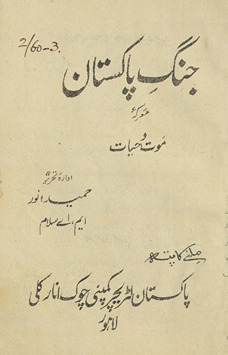 2/60-3.
جنگِ پاکستان
معرکۂ
موت و حیات
ادارۂ تحریر
حمید انور
ایم، اے سلام
ملنے کا پتہ
پاکستان لٹریچر کمپنی چوک انارکلی
لاہور